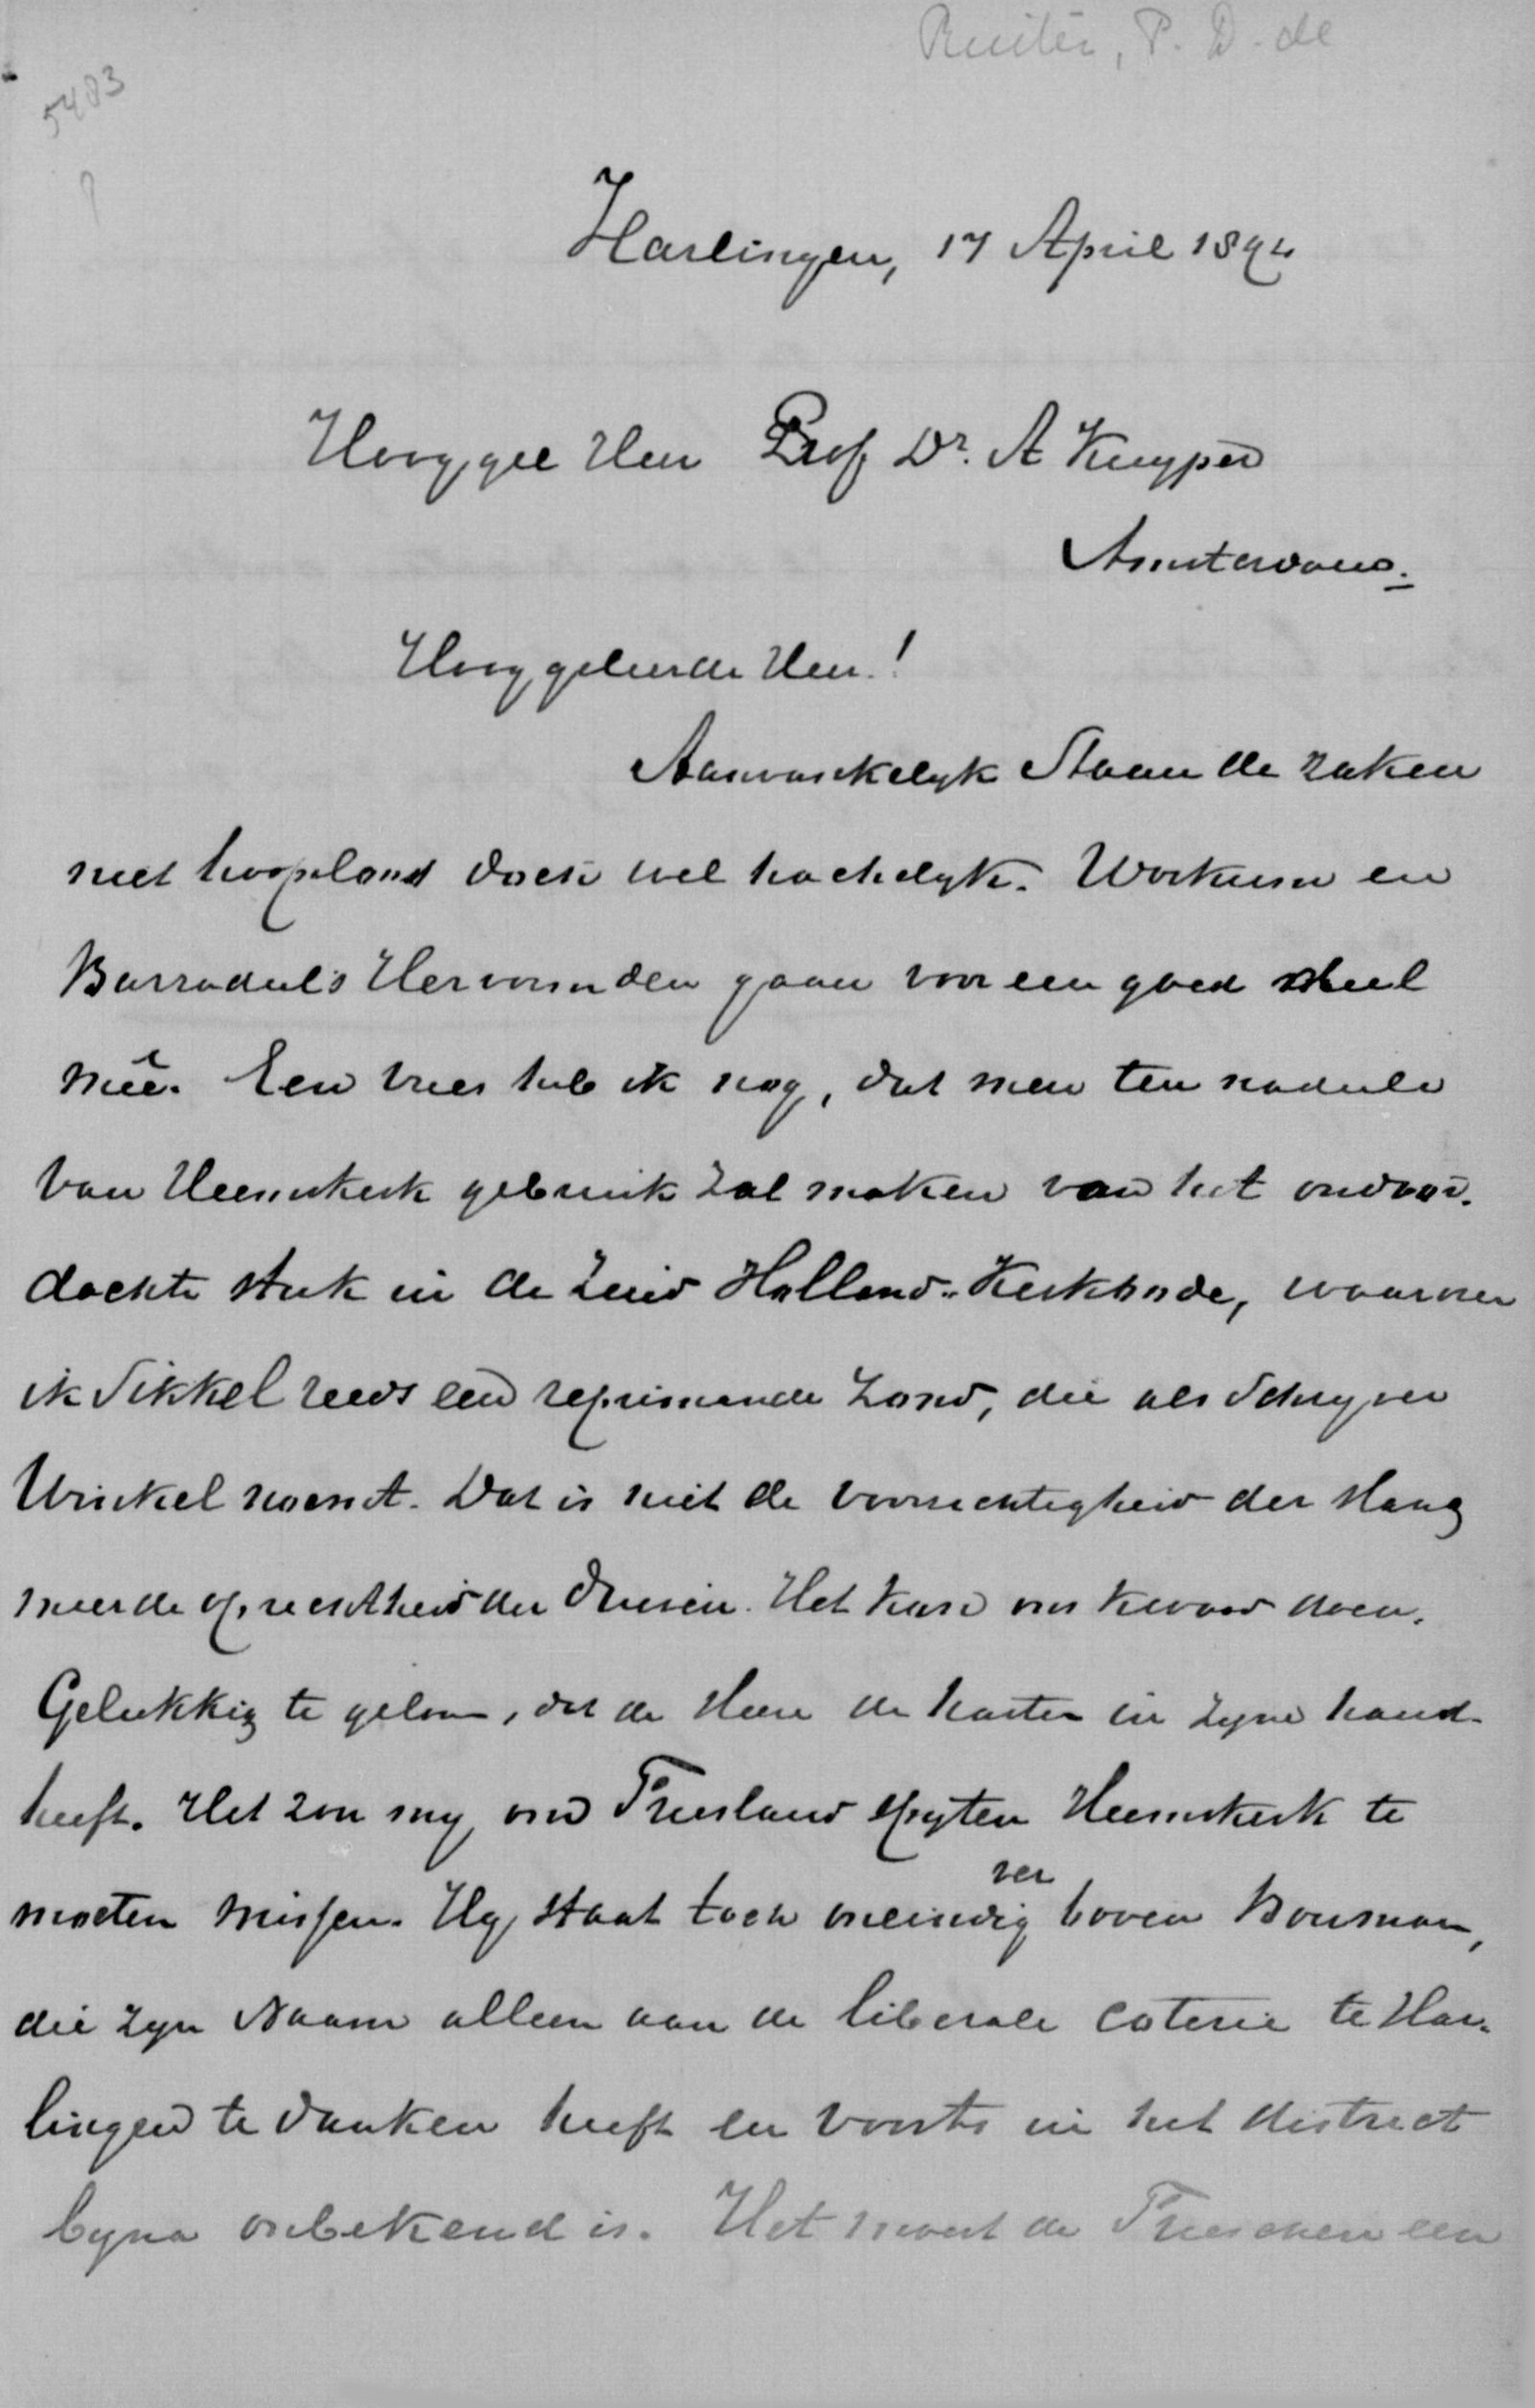 Ruiter, P. D. de
5483
Harlingen, 17 April 1894
Hooggel Heer Prof Dr. A Kuyper
Amsterdam.
Hooggeleerde Heer!
Aanvankelyk staan de zaken
niet hoopeloos doch wel hachelyk. Workum en
Barradeels Hervormden gaan voor een goed deel
meê. Een vrees heb ik nog, dat men ten nadeele
van Heemskerk gebruik zal maken van het ondoor-
dachte stuk in de Zuid Holland. Kerkbode, waarover
ik Sikkel reeds een reprimande zond, die als Schryver
Winckel noemt. Dat is niet de voorzichtigheid der slang
meer de oprechtheid der duiven. Het kan ons kwaad doen.
Gelukkig te gelooven, dat de Heere de harten in zyne hand
heeft. Het zou my om Friesland spyten Heemskerk te
moeten missen. Hy staat toch oneindig ver boven Bouman,
die zyn Naam alleen aan de liberale coterie te Har-
lingen te danken heeft en voorts in het district
byna onbekend is. Het moest de Frieschen een